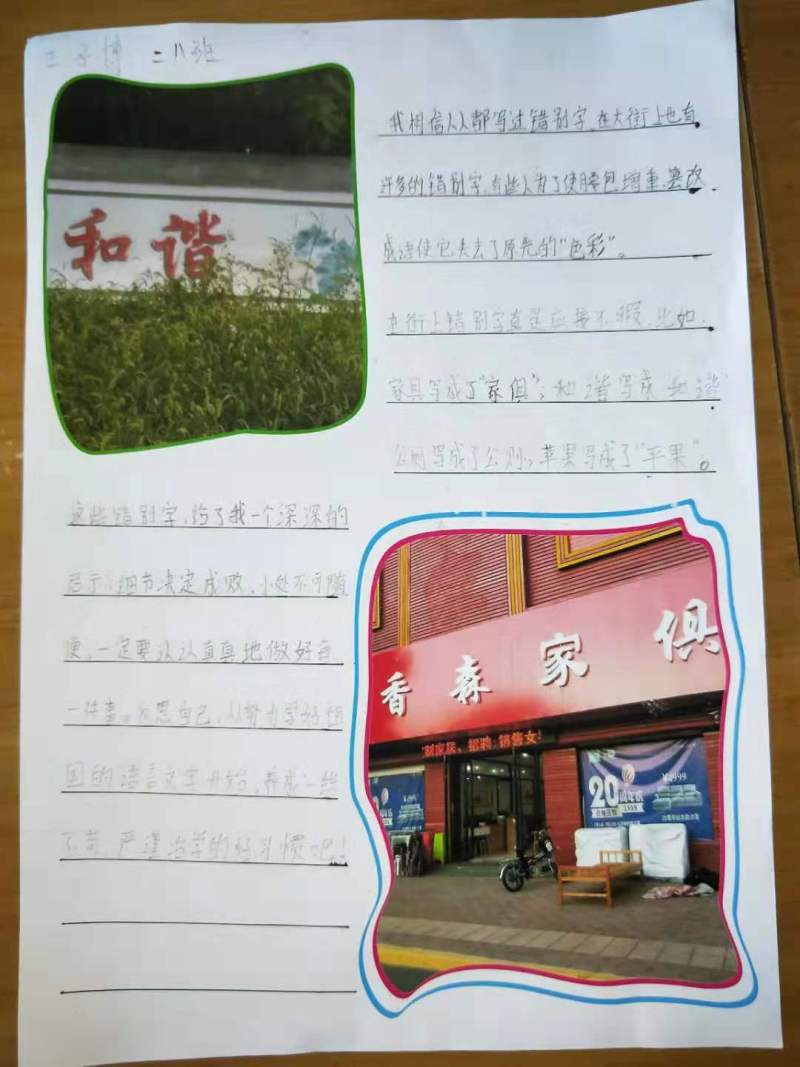 王子博 二八班
和谐
我相信人人都写过错别字,在大街上也有
许多的错别字,有些人为了使腰包增重,篡改
成语使它失去了原先的“色彩”。
在街上错别字真是应接不暇,比如,
家具写成了“家俱”;和谐写成和谐
公厕写成了公则;苹果写成了“平果”。
这些错别字,给了我一个深深的
启示:细节决定成败,小处不可随
便,一定要认认真真地做好每
一件事。反思自己,从努力学好祖
国的语言文字开始,养成一丝
不苟,严谨治学的好习惯吧!
香森家俱
招聘:销售女!
20周年庆
¥4999